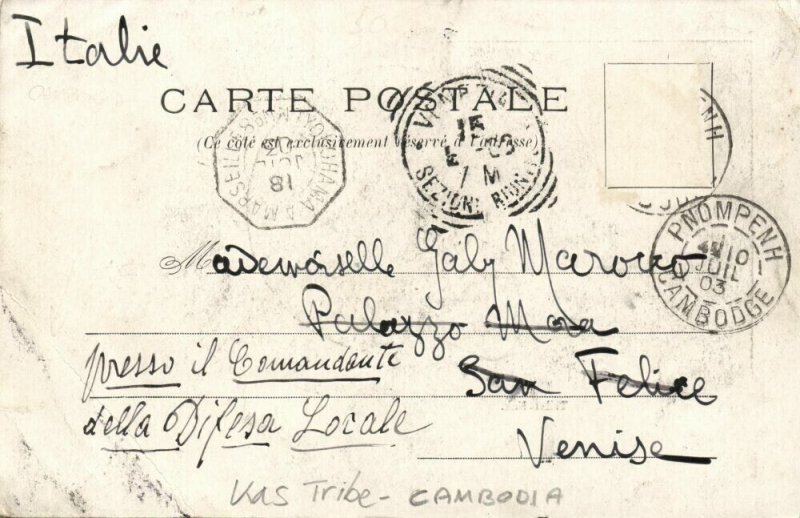 Italie
CARTE POSTALE
(Ce côté est exclusivement réservé à l'adresse)
YOKOHAMA A MARSEILLE
18
JUIL
15
1 M
SEZIONE RIUNITE
PNOMPENH
10
JUIL
03
CAMBODGE
Mademoiselle Gaby Marocco
Palazzo Mora
San Felice
Venise
presso il Comandante
della Difesa Locale
Kas Tribe - CAMBODIA